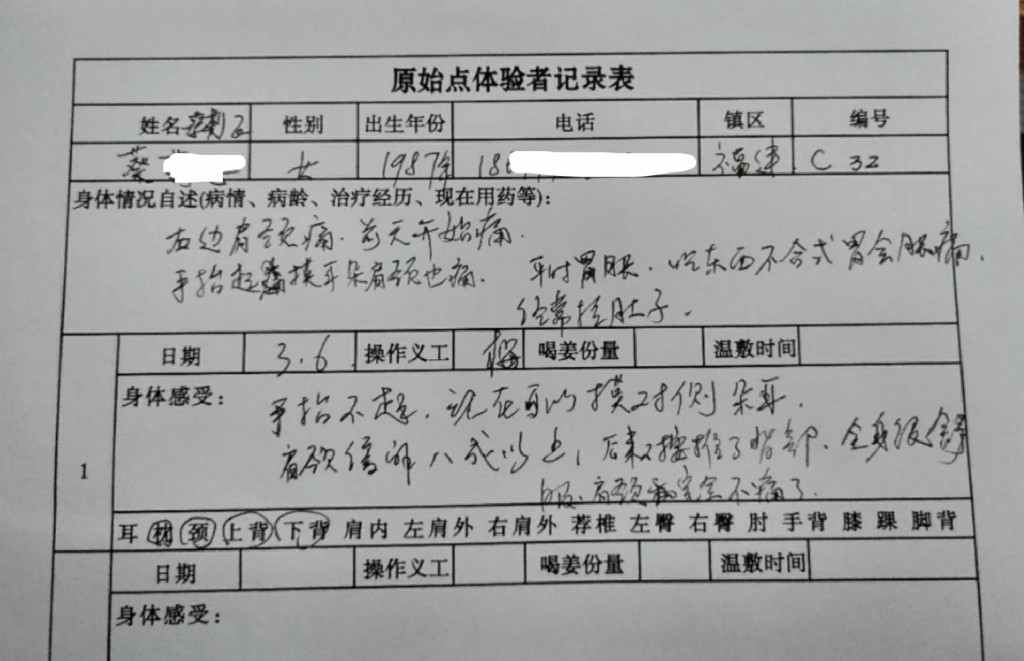 原始点体验者记录表
姓名 性别 出生年份 电话 镇区 编号
蔡 女 1987年 18 福建 C 32
身体情况自述(病情、病龄、治疗经历、现在用药等):
右边肩颈痛.前天开始痛.
手抬起摸耳朵肩颈也痛. 平时胃胀.吃东西不合式胃会胀痛.
经常拉肚子.
日期 3.6. 操作义工 喝姜份量 温敷时间
1
身体感受:
手抬不起.现在可以摸对侧朵耳.
肩颈 八成以上,后来又按推了背部.全身级舒
服.肩颈完全不痛了.
耳 枕 颈 上背 下背 肩内 左肩外 右肩外 荐椎 左臀 右臀 肘 手背 膝 踝 脚背
日期 操作义工 喝姜份量 温敷时间
身体感受: